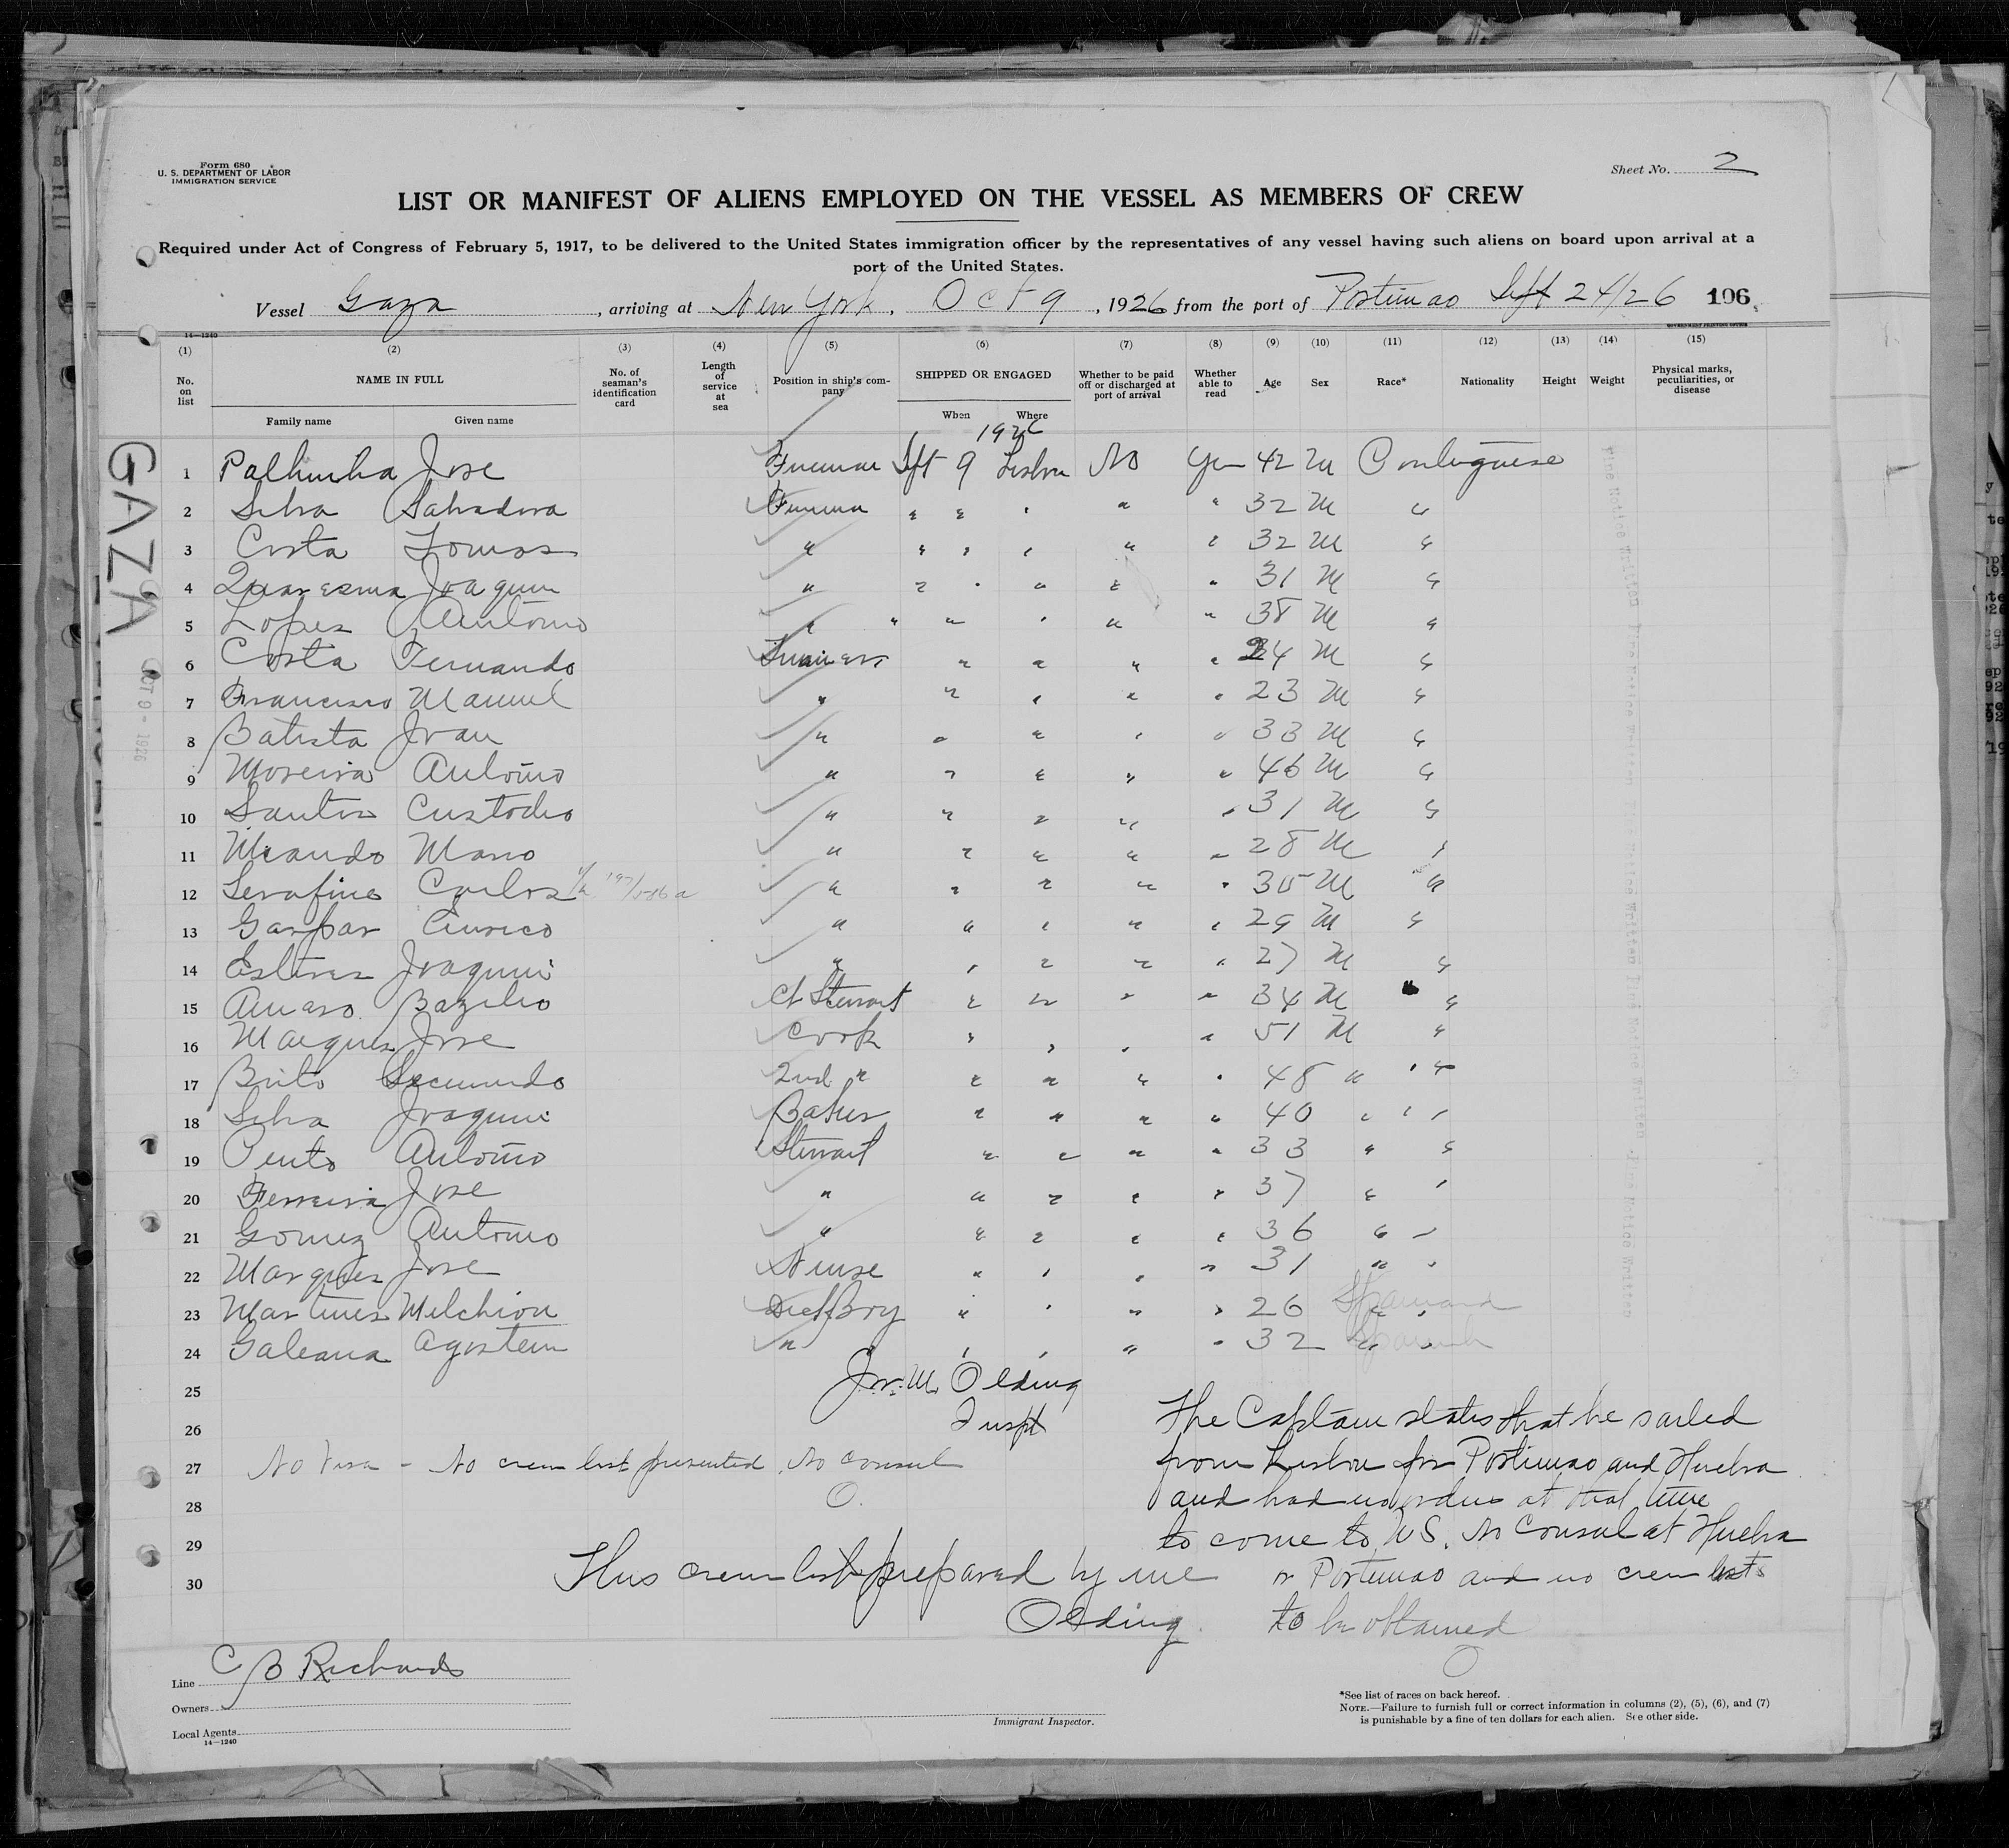 Form 680
U. S. DEPARTMENT OF LABOR
IMMIGRATION SERVICE
Sheet No. 2
LIST OR MANIFEST OF ALIENS EMPLOYED ON THE VESSEL AS MEMBERS OF CREW
Required under Act of Congress of February 5, 1917, to be delivered to the United States immigration officer by the representatives of any vessel having such aliens on board upon arrival at a
port of the United States.
Vessel Gaza, arriving at New York, Oct 9, 1926 from the port of Portimao Sept 24/26 106
14—1240
GOVERNMENT PRINTING OFFICE
(1) (2) (3) (4) (5) (6) (7) (8) (9) (10) (11) (12) (13) (14) (15)
No. on list NAME IN FULL No. of seaman's identification card Length of service at sea Position in ship's company SHIPPED OR ENGAGED Whether to be paid off or discharged at port of arrival Whether able to read Age Sex Race* Nationality Height Weight Physical marks, peculiarities, or disease
Family name Given name When Where
1926
GAZA
OCT 9 - 1926
1 Palhinha Jose Fireman Sept 9 Lisbon No Yes 42 M Portuguese
2 Silva Salvadora Fireman " " " " " 32 M "
3 Costa Tomas " " " " " " 32 M "
4 Quaresma Joaquim " " " " " " 31 M "
5 Lopes Antonio " " " " " " 38 M "
6 Costa Fernando Trimmers " " " " 24 M "
7 Francisco Manuel " " " " " 23 M "
8 Batista Joau " " " " " 33 M "
9 Moreira Antonio " " " " " 46 M "
10 Santos Custodio " " " " " 31 M "
11 Mario " " " " " 28 M "
12 Serafino Carlos " " " " " 35 M "
13 Gaspar Eurico " " " " " 29 M "
14 Esteves Joaquim " " " " " 27 M "
15 Amaro Bazilio Ch Stewart " " " " 34 M "
16 Marques Jose Cook " " " " 51 M "
17 Brito Secundo 2nd " " " " " 48 " "
18 Silva Joaquim Baker " " " " 40 " "
19 Pinto Antonio Stewart " " " " 33 " "
20 Ferreira Jose " " " " " 37 " "
21 Gomez Antonio " " " " " 36 " "
22 Marques Jose Nurse " " " " 31 " "
23 Martines Melchior Deck Boy " " " " 26 " " Spaniard
24 Galeana Agostein " " " " " 32 " " Spanish
25 Jos. M. Olding
26 Inspt
27 No Visa - No crew list presented. No consul
28 O.
29
30
The Captain states that he sailed
from Lisbon for Portimao and Huelva
and had no orders at that time
to come to U S. No Consul at Huelva
or Portimao and no crew lists
to be obtained
O
This crew list prepared by me
Olding
Line C B Richards
Owners
Local Agents
14—1240
Immigrant Inspector.
*See list of races on back hereof.
NOTE.—Failure to furnish full or correct information in columns (2), (5), (6), and (7)
is punishable by a fine of ten dollars for each alien. See other side.